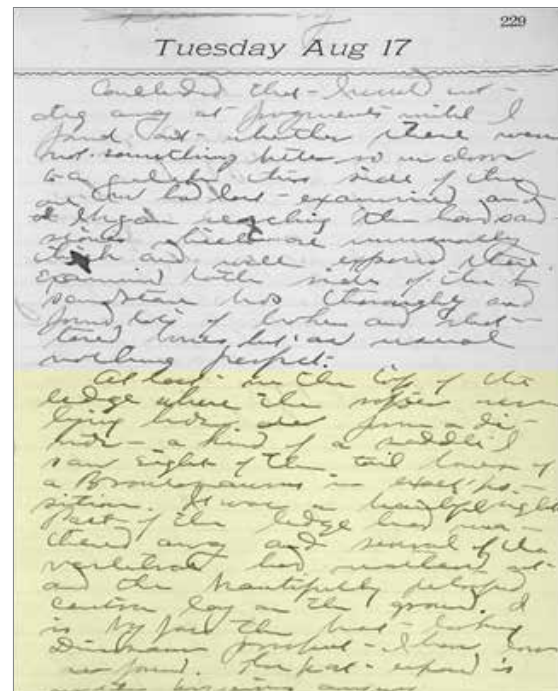 229
Tuesday Aug 17
Concluded that I would not
dig away at fragments until I
found out whether there were
not something better so
this side of the
one we had last examined and
at length reaching the hard sand
which are unusually
thick and well exposed there
examined both sides of the
sandstone thoroughly and
found lots of broken and shat-
tered bones but as usual
nothing perfect.
At last in the top of the
ledge where the softer over
lying beds form a di-
vide - a kind of a saddle I
saw eight of the tail bones of
a Brontosaurus in exact po-
sition. It was a beautiful sight
Part of the ledge had wea-
thered away and several of the
vertebrae had weathered out
and the beautifully petrified
centra lay on the ground. It
is by far the best looking
Dinosaur prospect I have ever
found. The part exposed is